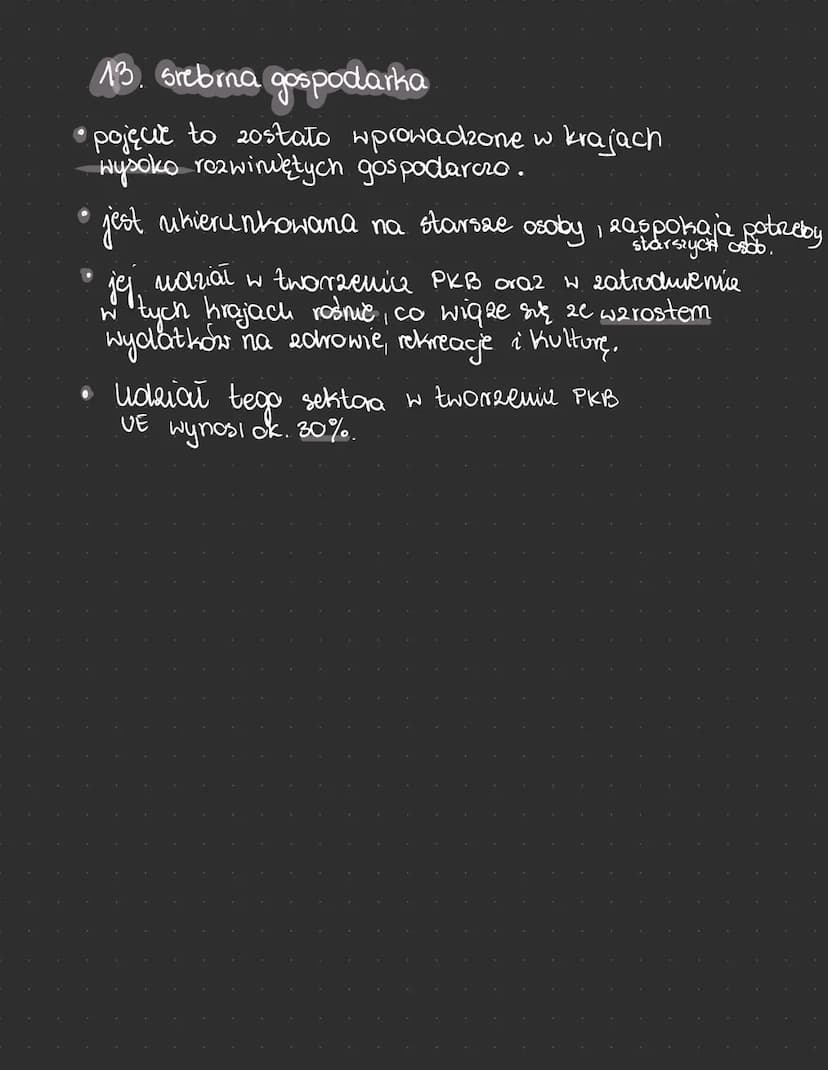 13. srebrna gospodarka
• pojęcie to zostało wprowadzone w krajach
wysoko rozwiniętych gospodarczo.
• jest ukierunkowana na starsze osoby, zaspokaja potrzeby
starszych osób.
• jej udział w tworzeniu PKB oraz w zatrudnieniu
w tych krajach rośnie, co wiąże się ze wzrostem
wydatków na zdrowie, rekreacje i kulturę.
• Udział tego sektora w tworzeniu PKB
UE wynosi ok. 30%.